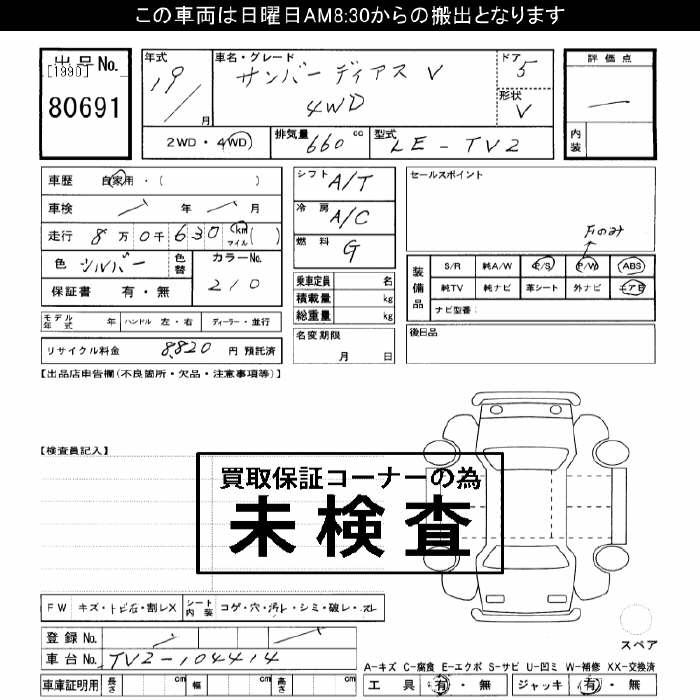 この車両は日曜日AM8:30からの搬出となります
出品No.
[1990]
80691
年式
19/
月
車名・グレード
サンバーディアス V
4WD
ドア
5
形状
V
評価点
内装
2WD・4WD
排気量
660 cc
型式
LE-TV2
車歴 自家用・( )
車検 年 月
走行 8万0千630 (km マイル)( )
色 シルバー
色替
カラーNo.
210
保証書 有・無
モデル年式 年
ハンドル 左・右
ディーラー・並行
リサイクル料金 8,820 円 預託済
シフト A/T
冷房 A/C
燃料 G
乗車定員 名
積載量 kg
総重量 kg
名変期限
月 日
セールスポイント
Fのみ
装備品
S/R 純A/W P/S P/W ABS
純TV 純ナビ 革シート 外ナビ エアB
ナビ型番:
後日品
【出品店申告欄(不良箇所・欠品・注意事項等)】
【検査員記入】
買取保証コーナーの為
未検査
FW キズ・トビ石・割レX
シート内装 コゲ・穴・汚レ・シミ・破レ・スレ
登録No.
車台No. TV2-104414
車庫証明用 長さ cm 幅 cm 高さ cm
スペア
A-キズ C-腐食 E-エクボ S-サビ U-凹ミ W-補修 XX-交換済
工具 有・無 ジャッキ 有・無